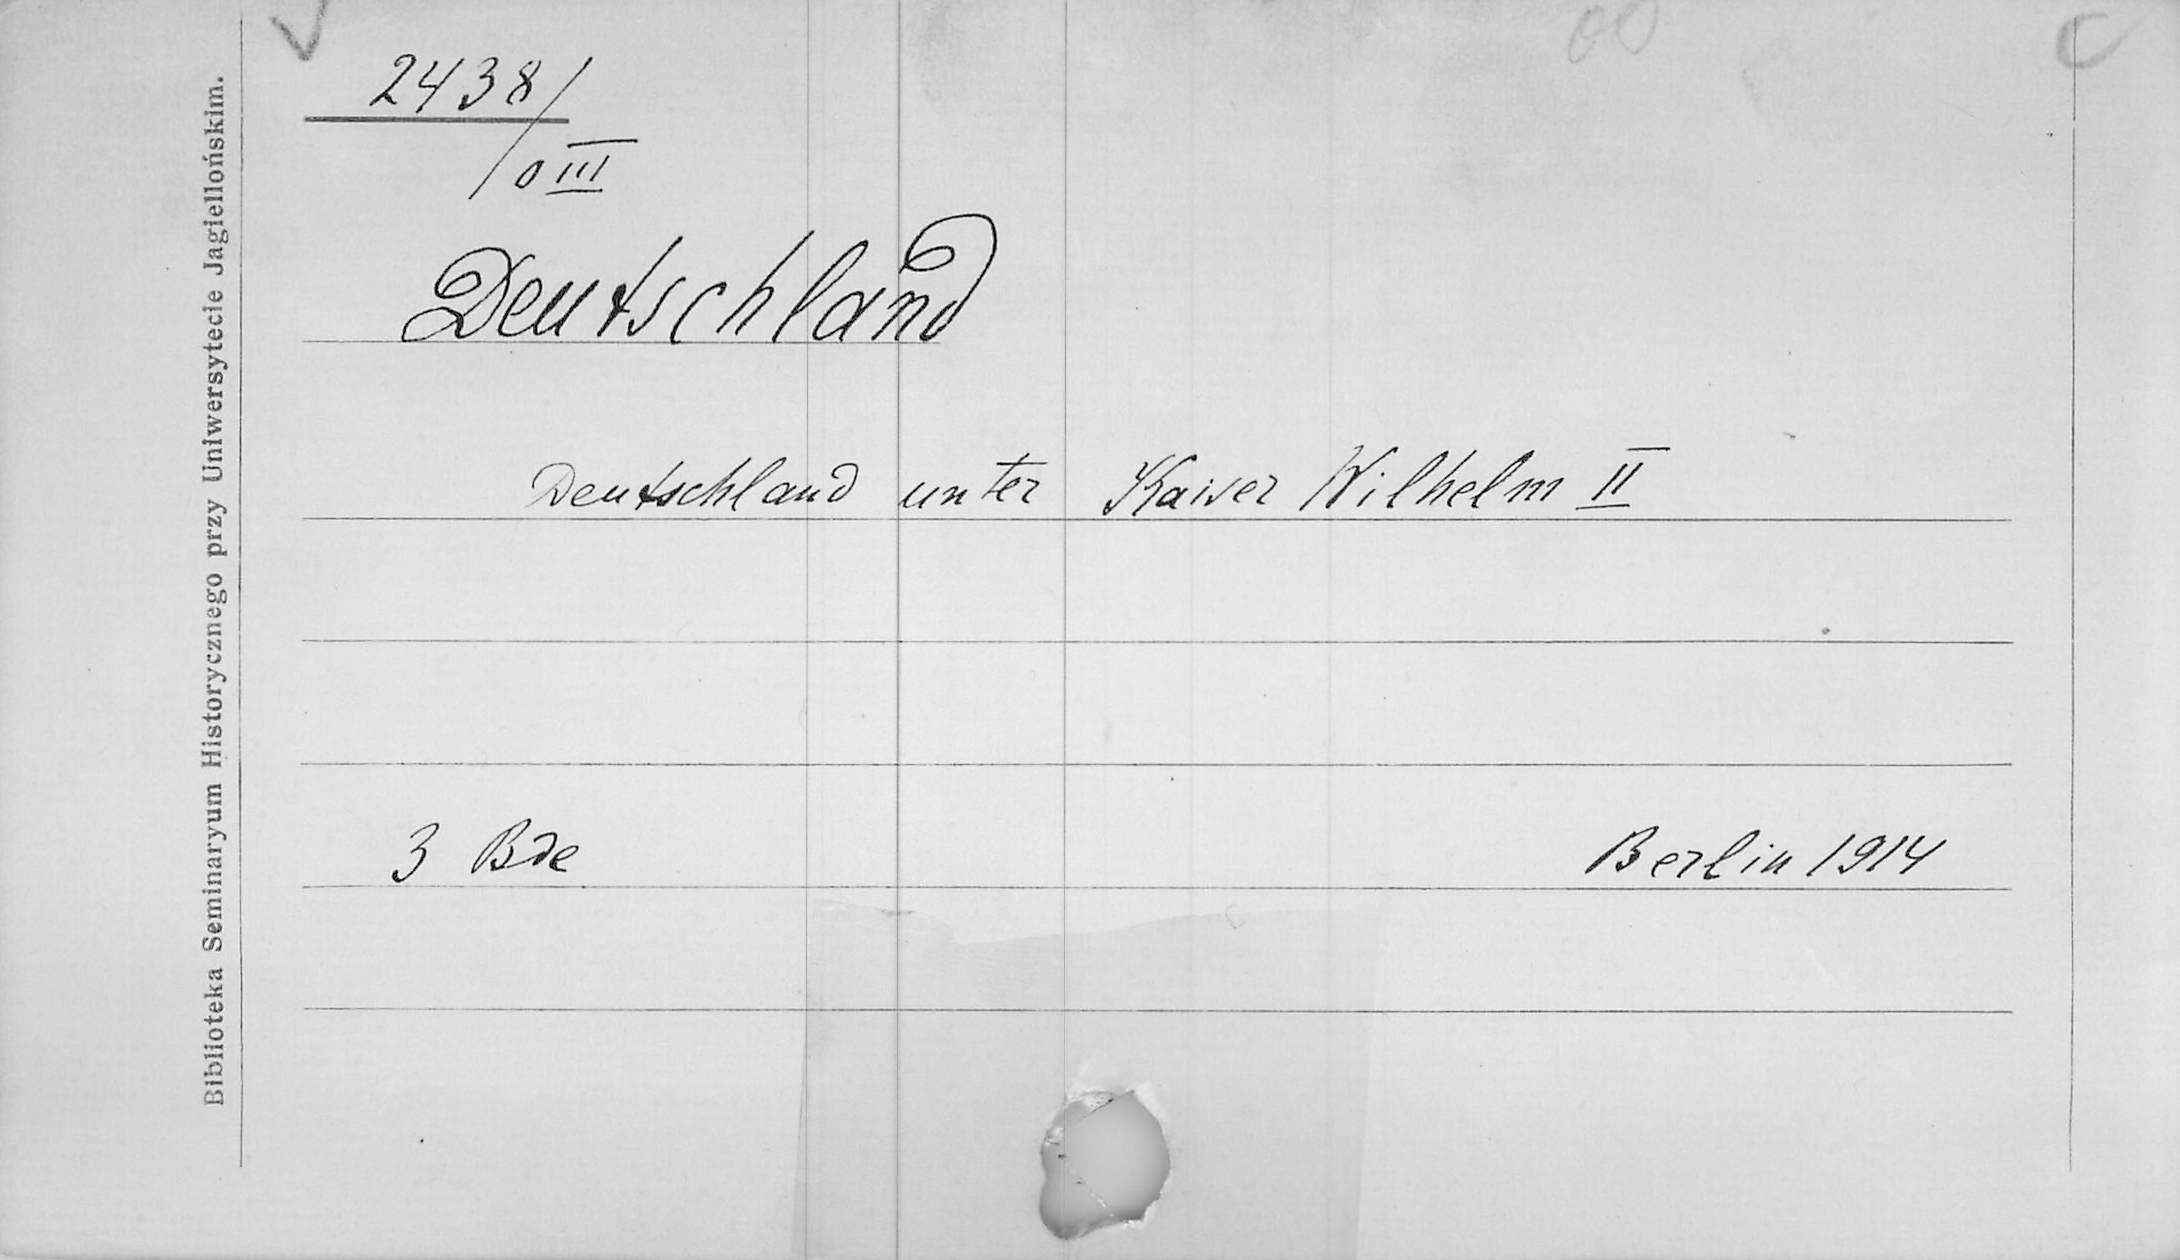 2438/
0 III
Deutschland
Deutschland unter Kaiser Wilhelm II
3 Bde
Berlin 1914
Biblioteka Seminaryum Historycznego przy Uniwersytecie Jagiellońskim.